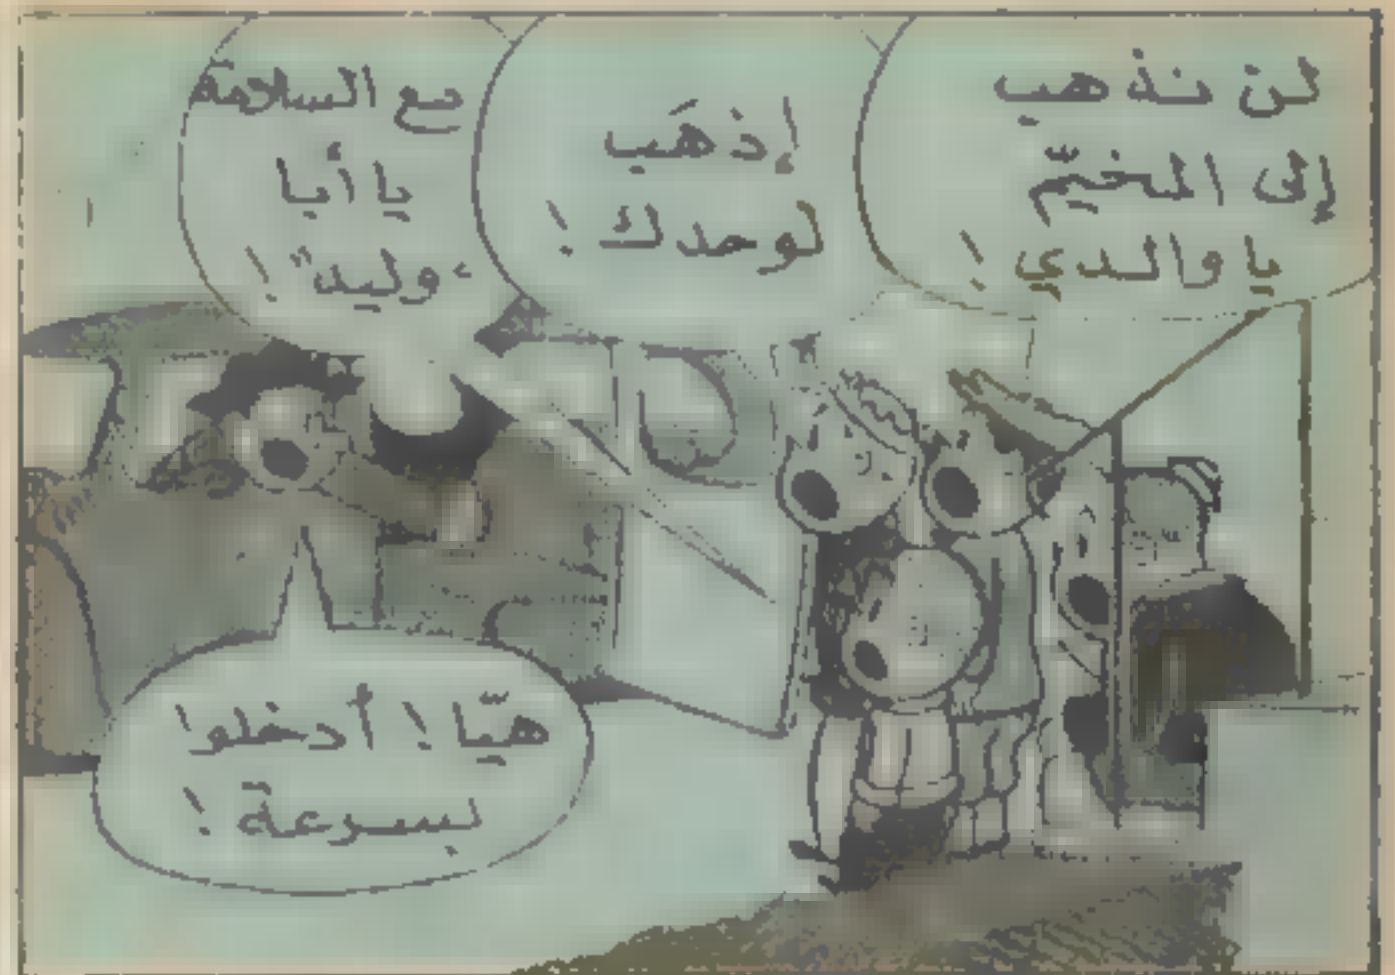 لن نذهب
إلى المخيّم
يا والدي !
إذهَب
لوحدك !
مع السلامة
يا أبا
"وليد" !
هيّا ! أدخلوا
بسرعة !